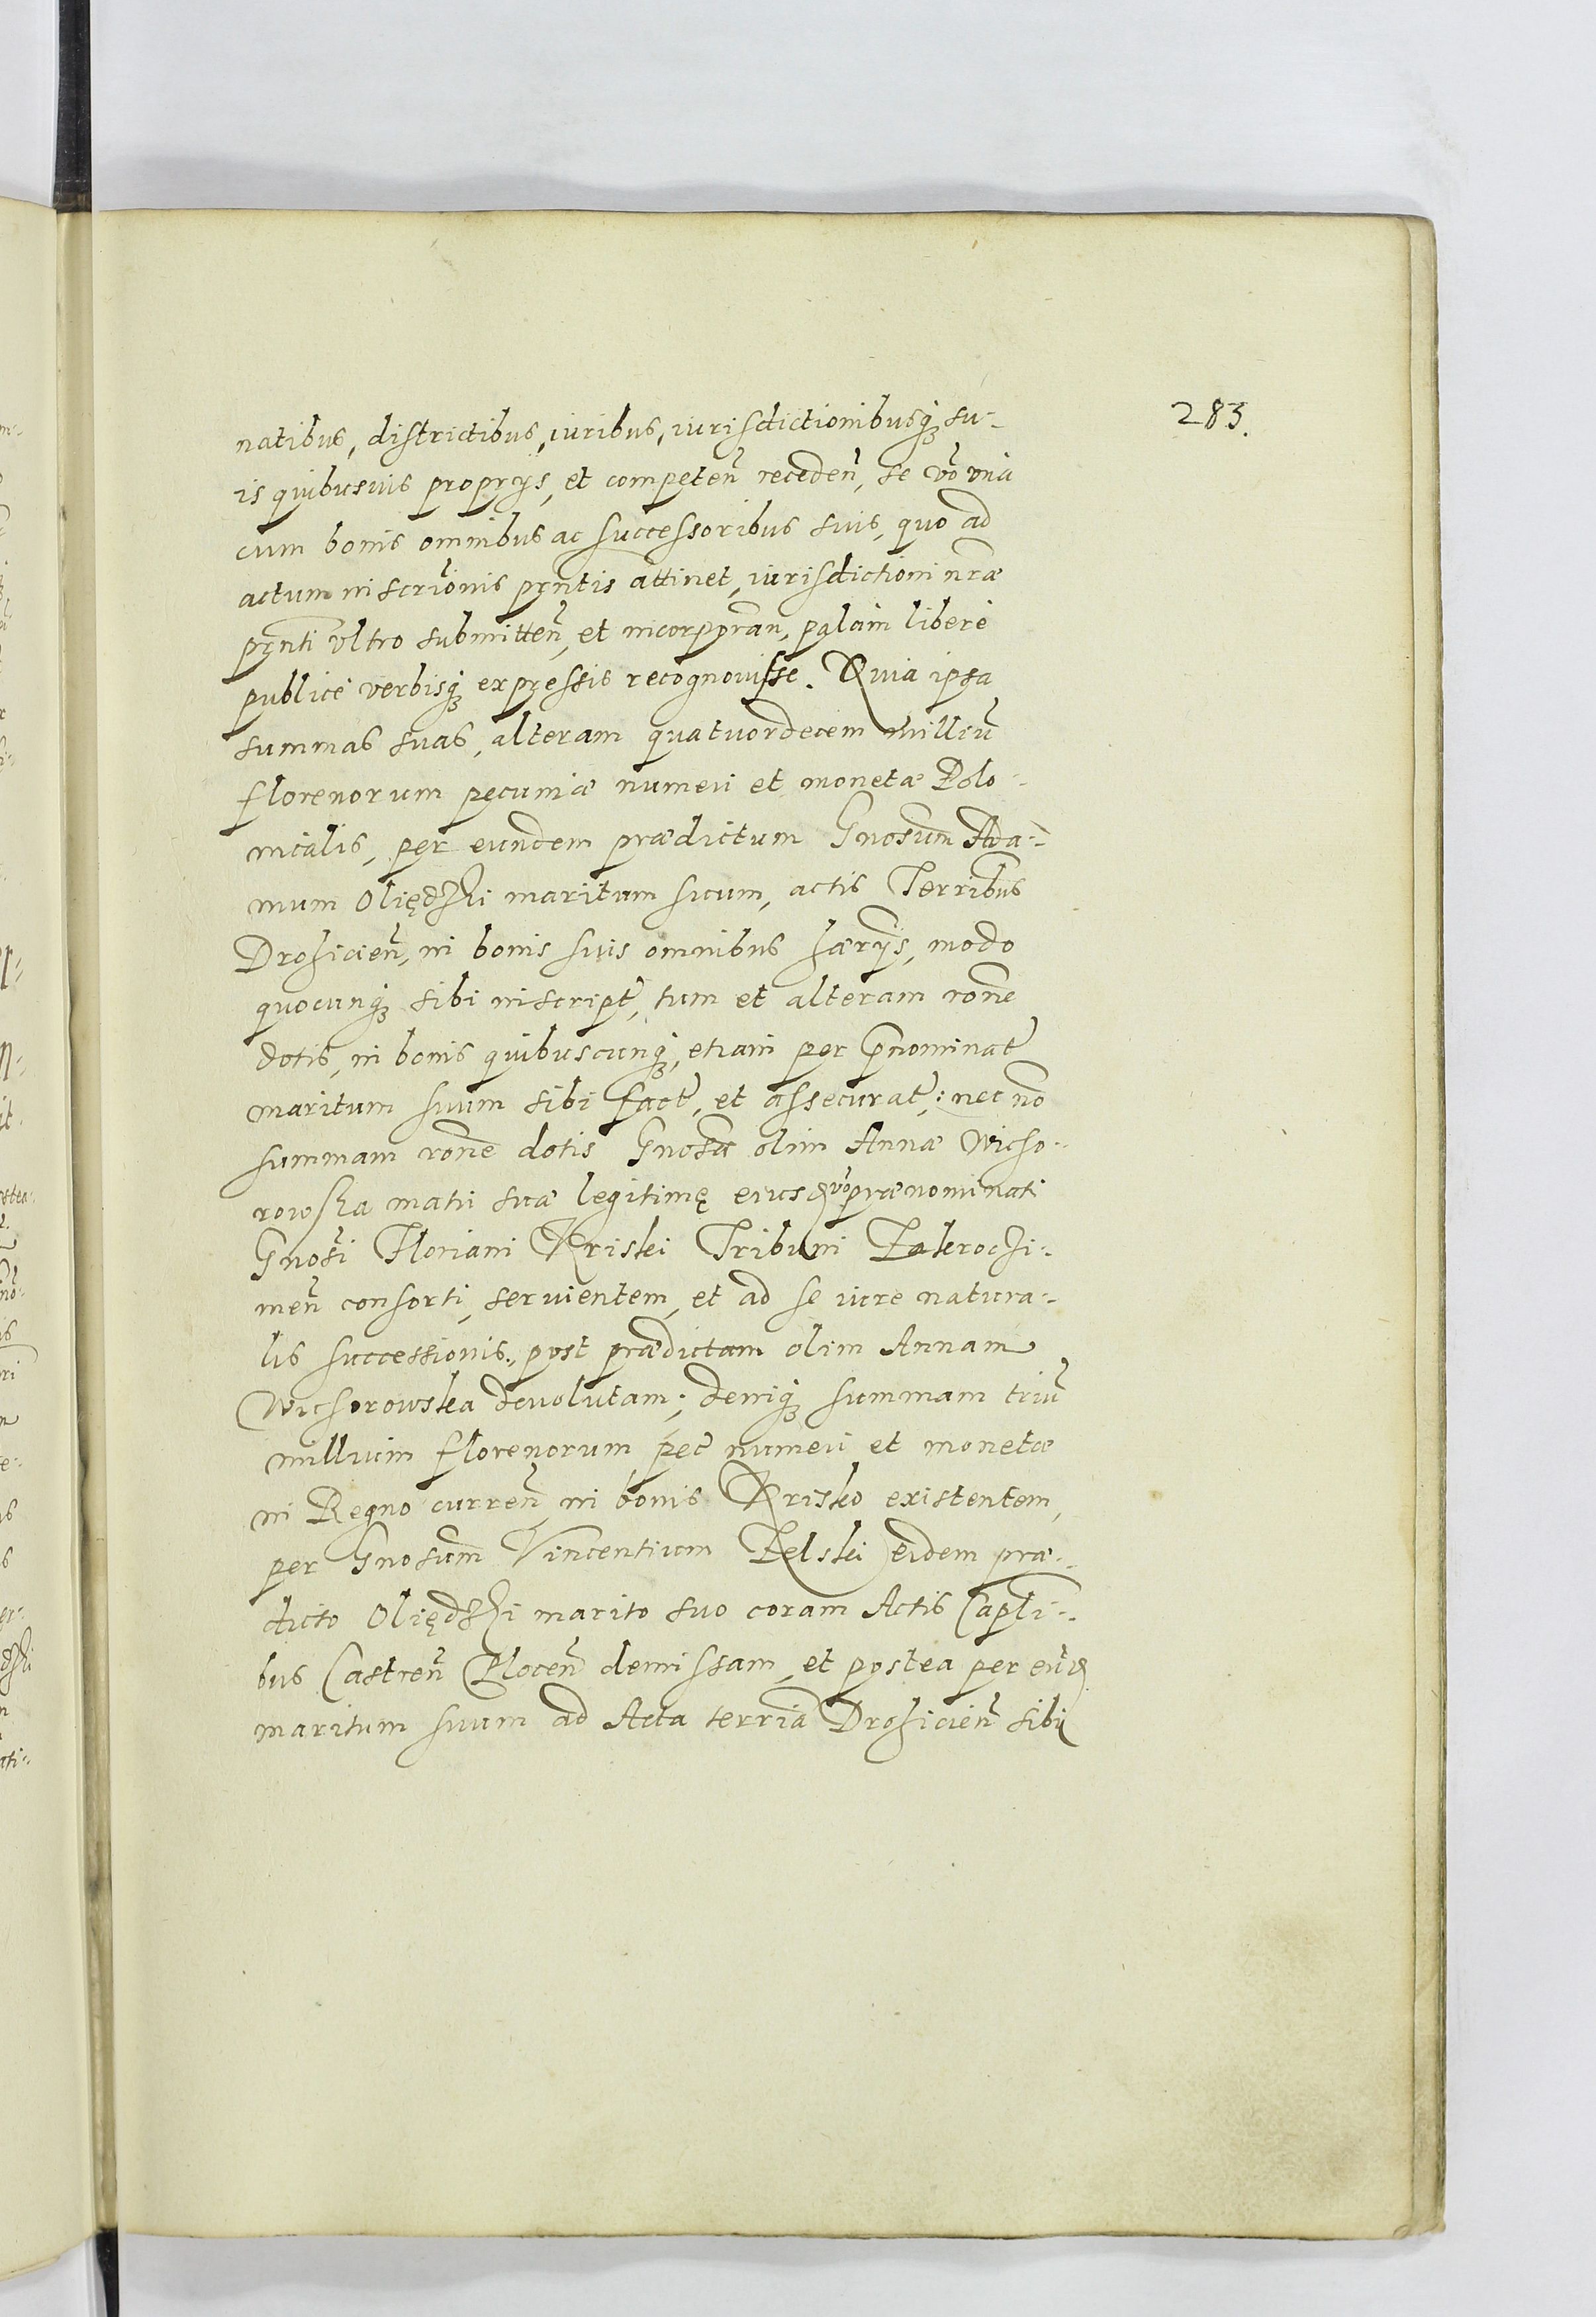 283.
natibus, districtibus, iuribus, iurisdictionibusq́ʒ su-
is quibusuis proprys, et competeñ recedeñ, se vo᷃ vná
cum bonis omnibus ac successoribus suis, quo ad
actum inscrionis pꝛntis attinet, iurisdictioni nræ
pꝛnti vltro submitteñ, et incorporañ, palam liberè
publicè verbisq́ʒ expressis recognouisse. Quia ipsa
summas suas, alteram quatuordecem milliũ
florenorum pecuniæ numeri et monetæ Polo-
nicalis, per eundem prædictum Gnosum Ada-
mum Oliędzki maritum suum, actis Terribus
Drohicieñ, in bonis suis omnibus hærijs, modo
quocunq́ʒ sibi inscript, tum et alteram rõne
dotis, in bonis quibuscunq́ʒ, etiam per p̃nominat
maritum suum sibi fact, et assecurat: nec nõ
summam rõne dotis Gnosæ olim Annæ Wicho-
rowska matri suæ legitimę eiusd vo᷃ prænominati
Gnosi Floriani Kriski Tribuni Zakroczi-
meñ consorti, seruientem, et ad se iure natura-
lis successionis, post prædictam olim Annam
Wichorowska deuolutam; deniq́ʒ summam triũ
millium florenorum pec̃ numeri et monetæ
in Regno curreñ, in bonis Krisko existentem,
per Gnosum Vincentium Belski eidem præ-
dicto Oliędzki marito suo coram Actis Capli-
bus Castreñ Ploceñ demissam, et postea per eund
maritum suum ad Acta terria Drohicieñ sibi